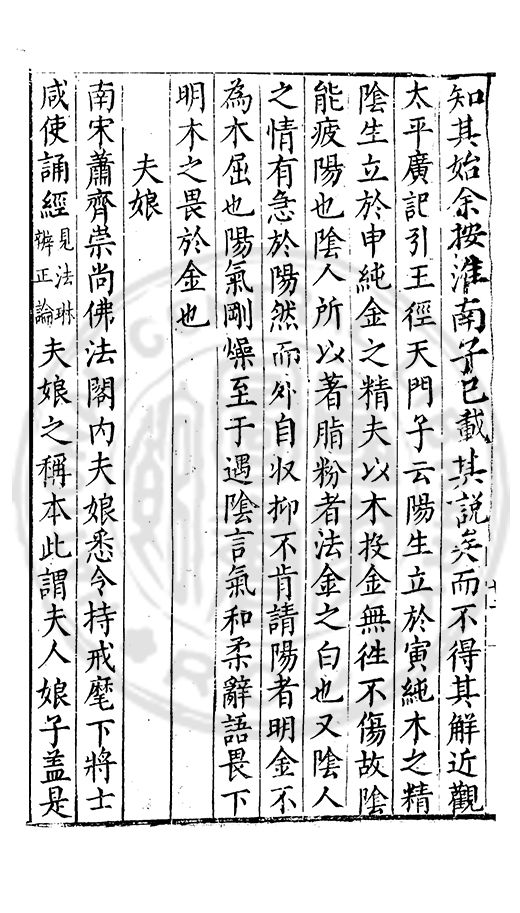 知其始余按淮南子已載其說矣而不得其解近觀
太平廣記引王徑天門子云陽生立於寅純木之精
陰生立於申純金之精夫以木投金無徃不傷故陰
能疲陽也陰人所以著脂粉者法金之白也又陰人
之情有急於陽然而外自収抑不肯請陽者明金不
為木屈也陽氣剛燥至于遇陰言氣和柔辭語畏下
明木之畏於金也
夫娘
南宋蕭齊崇尚佛法閣内夫娘悉令持戒麾下將士
咸使誦經見法琳辨正論夫娘之稱本此謂夫人娘子盖是